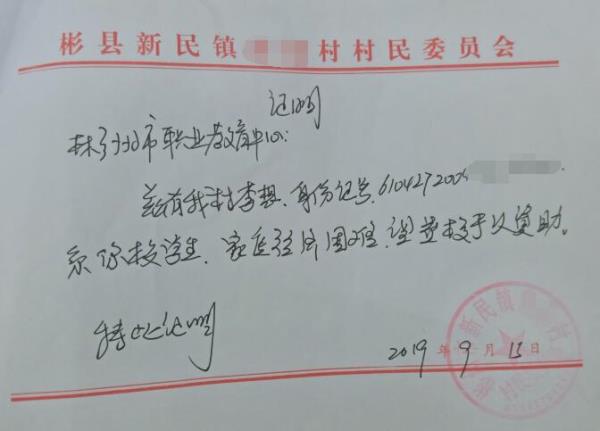 彬县新民镇 村村民委员会
证明
彬州市职业教育中心:
兹有我村李想、身份证号,610427200
系你校学生、家庭经济困难、望贵校予以资助。
特此证明
2019年9月15日
新民镇